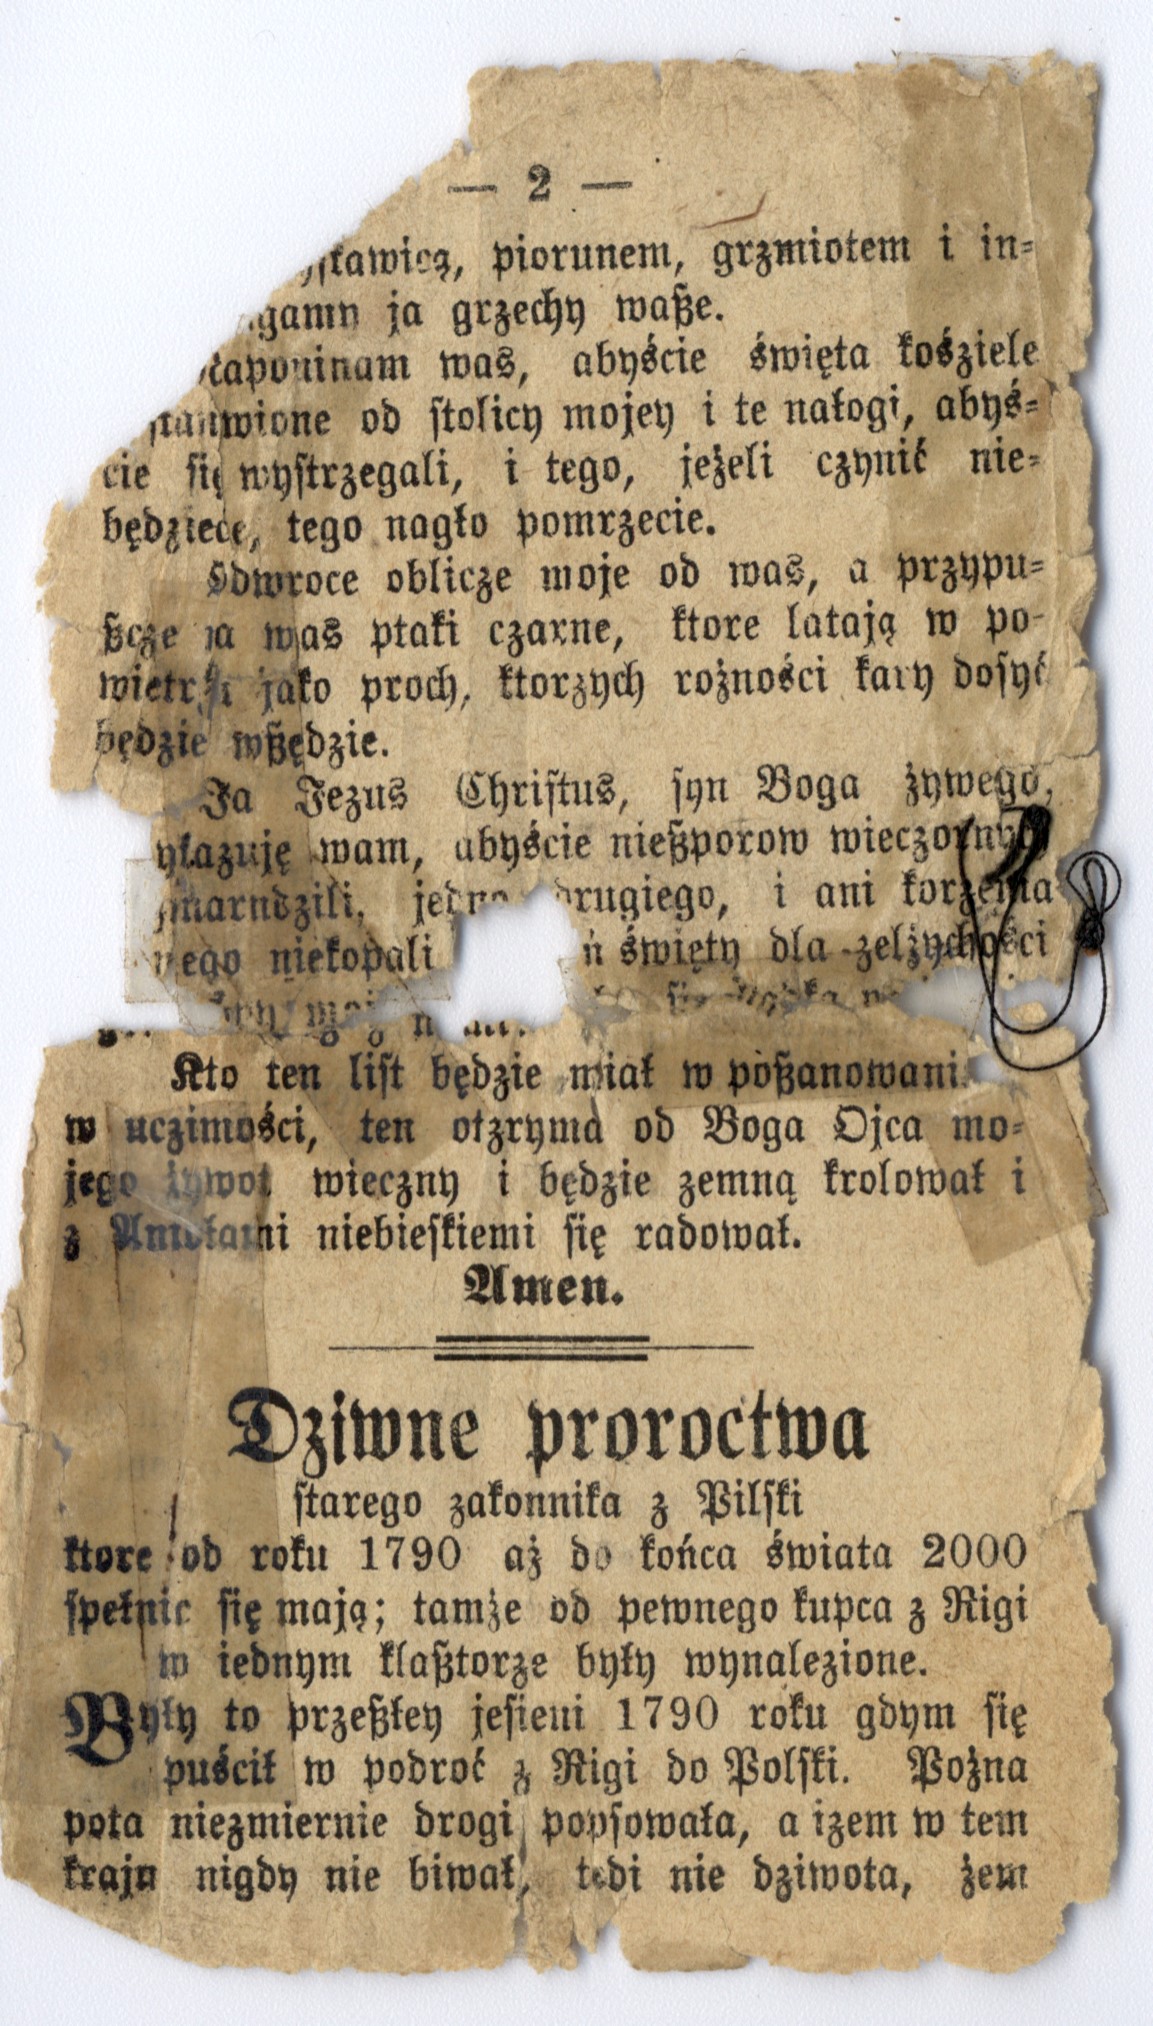 — 2 —
piorunem, grzmiotem i in-
ja grzechy waße.
was, abyście święta kośziele
od stolicy mojey i te nałogi, abyś-
cie się wystrzegali, i tego, jeżeli czynić nie-
będziece, tego nagło pomrzecie.
Odwroce oblicze moje od was, a przypu-
ßcze na was ptaki czarne, ktore latają w po-
wietrzu jako proch, ktorzych rożności kary dosyć
będzie wßędzie.
Ja Jezus Christus, syn Boga żywego,
wam, abyście nießporow wieczornych
drugiego, i ani korzenia
niekopali święty dla zelżychości
Kto ten list będzie miał w poßanowani
w uczimości, ten otzryma od Boga Ojca mo-
jego żywot wieczny i będzie zemną krolował i
z Aniołami niebieskiemi się radował.
Amen.
Dziwne proroctwa
starego zakonnika z Pilski
ktore od roku 1790 aż do końca świata 2000
spełnic się mają; tamże od pewnego kupca z Rigi
w iednym klaßtorze były wynalezione.
Były to przeßłey jesieni 1790 roku gdym się
puścił w podroć z Rigi do Polski. Pożna
pota niezmiernie drogi popsowała, a izem w tem
kraju nigdy nie biwał, tedi nie dziwota, żem